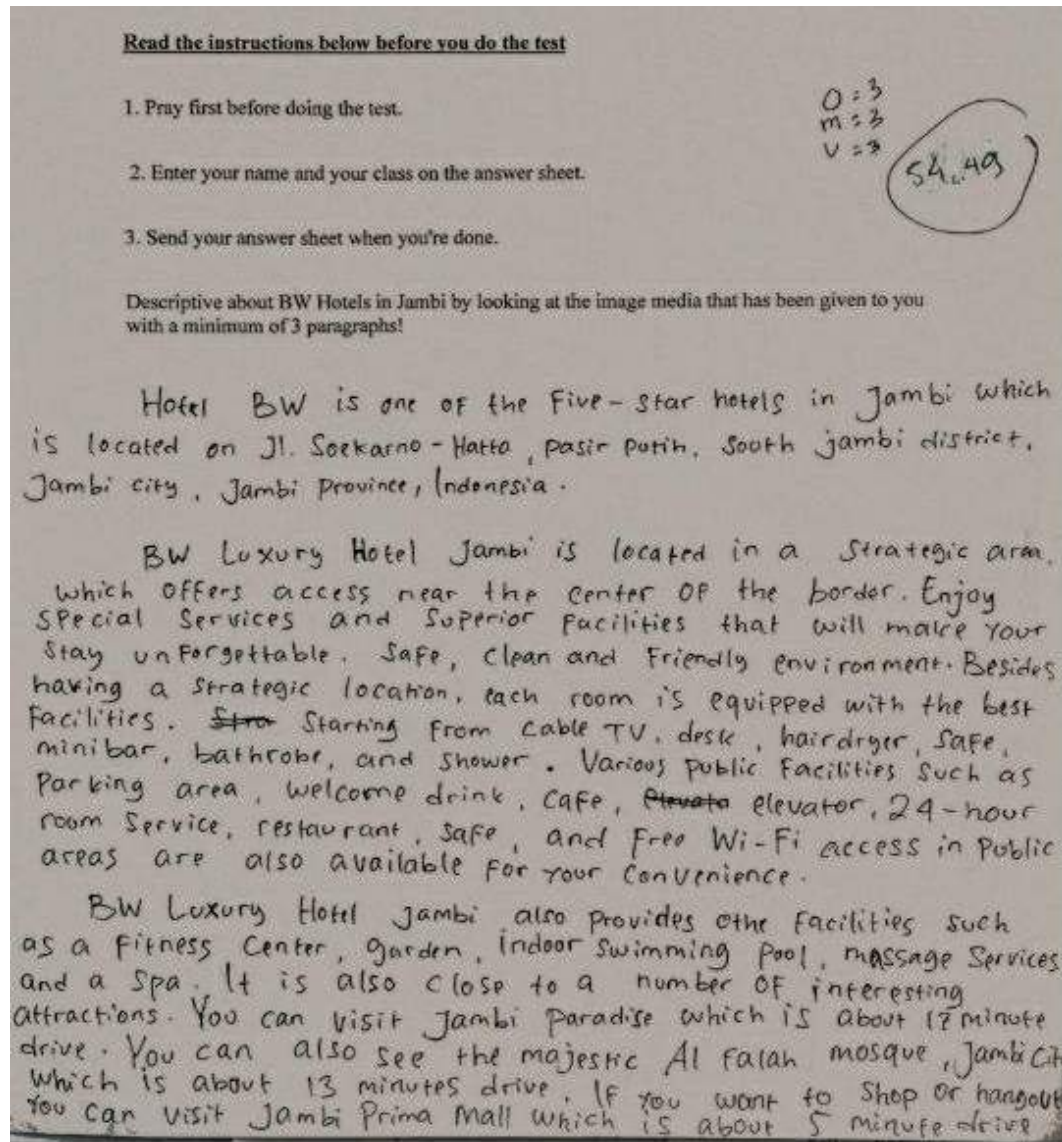 Read the instructions below before you do the test
1. Pray first before doing the test.
O = 3
m = 3
V = 3
54,49
2. Enter your name and your class on the answer sheet.
3. Send your answer sheet when you're done.
Descriptive about BW Hotels in Jambi by looking at the image media that has been given to you
with a minimum of 3 paragraphs!
Hotel BW is one of the Five-star hotels in Jambi which
is located on Jl. Soekarno-Hatta, pasir putih, South jambi district,
Jambi city, Jambi Province, Indonesia.
BW Luxury Hotel Jambi is located in a Strategic
which offers access near the center of the border. Enjoy
Special Services and Superior Facilities that will make your
Stay unforgettable. Safe, Clean and Friendly environment. Besides
having a Strategic location, each room is equipped with the best
Facilities. Stra Starting From Cable TV, desk, hairdryer, Safe,
minibar, bathrobe, and shower. Various public Facilities Such as
Parking area, welcome drink, cafe, elevato elevator, 24-hour
room Service, restaurant, safe, and Free Wi-Fi access in Public
areas are also available For your Convenience.
BW Luxury Hotel jambi also provides othe Facilities such
as a Fitness Center, garden, indoor swimming Pool, massage Services
and a spa. It is also close to a number of interesting
attractions. You can visit Jambi Paradise which is about 17 minute
drive. You can also see the majestic Al Falah mosque, Jambi Cit
which is about 13 minutes drive. If you want to Shop or hangout
You can visit Jambi Prima Mall which is about 5 minute drive